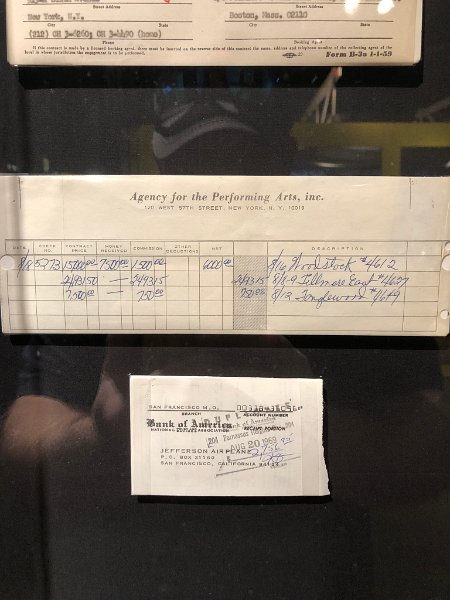 Street Address Street Address
New York, N.Y. Boston, Mass. 02110
City State City State
(212) CH 3-6260; CH 3-4490 (home)
Phone Booking Agent
If this contract is made by a licensed booking agent, there must be inserted on the reverse side of this contract the name, address and telephone number of the collecting agent of the
local in whose jurisdiction the engagement is to be performed. Form B-3a 1-1-59
Agency for the Performing Arts, inc.
120 WEST 57TH STREET, NEW YORK, N. Y. 10019
DATE CHECK NO. CONTRACT PRICE MONEY RECEIVED COMMISSION OTHER DEDUCTIONS NET DESCRIPTION
5273 15000.00 7500.00 1500.00 6000.00 8/16 Woodstock #4612
24931.50 — 2493.15 2493.15 8/8-9 Fillmore East #4627
7500.00 — 750.00 750.00 8/12 Tanglewood #4649
SAN FRANCISCO M.O.
BRANCH ACCOUNT NUMBER
Bank of America
NATIONAL TRUST AND SAVINGS ASSOCIATION RECEIPT PORTION
AUG 20 1969
JEFFERSON AIRPLANE
P.O. BOX 31160
SAN FRANCISCO, CALIFORNIA